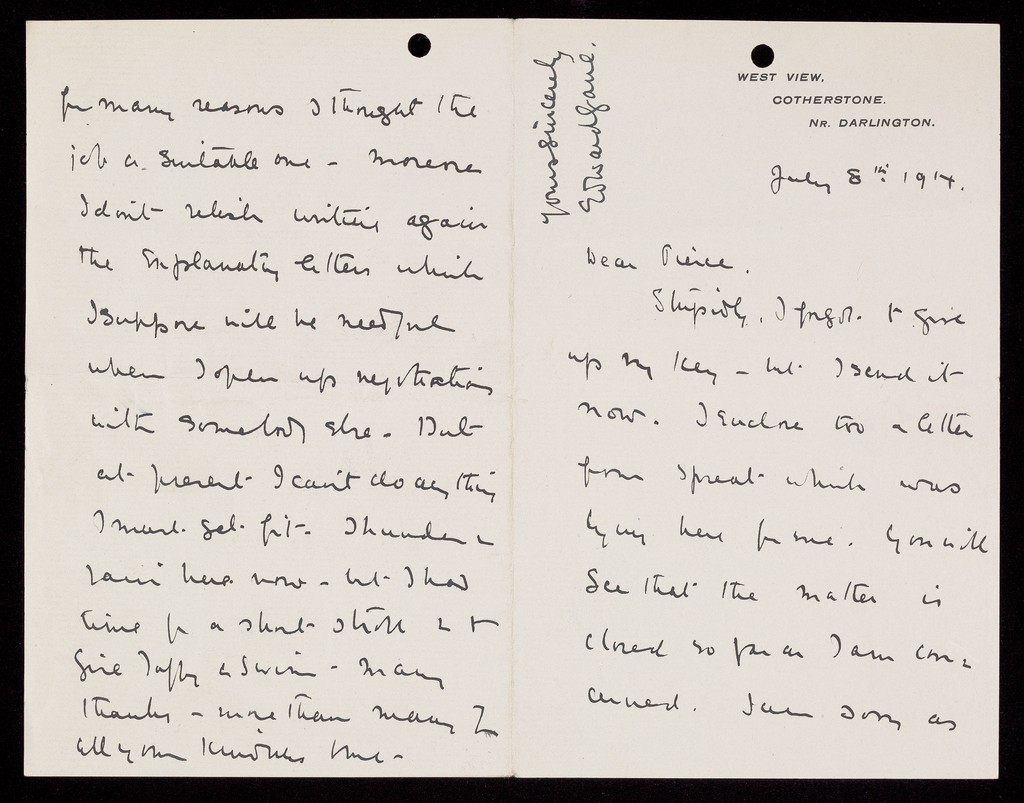 WEST VIEW,
COTHERSTONE.
NR. DARLINGTON.
July 8th 1914.
Dear Pierce.
Stupidly, I forgot to give
up my key - but I send it
now. I enclose too a letter
from Spreat which was
lying here for me. You will
see that the matter is
closed so far as I am con=
cerned. I am sorry as
for many reasons I thought the
job a suitable one - moreover
I don't relish writing again
the explanatory letters which
I suppose will be needful
when I open up negotiations
with somebody else. But
at present I can't do anything
I must get fit. Thunder &
rain here now - but I had
time for a short stroll & to
give Taffy a swim - Many
thanks - more than many for
all your kindness to me -
Yours sincerely